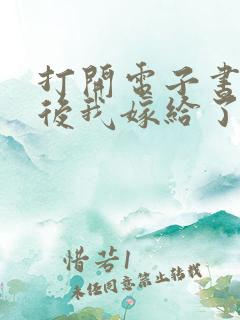 打開電子書
後我嫁給了
惜若1
未經同意禁止轉載